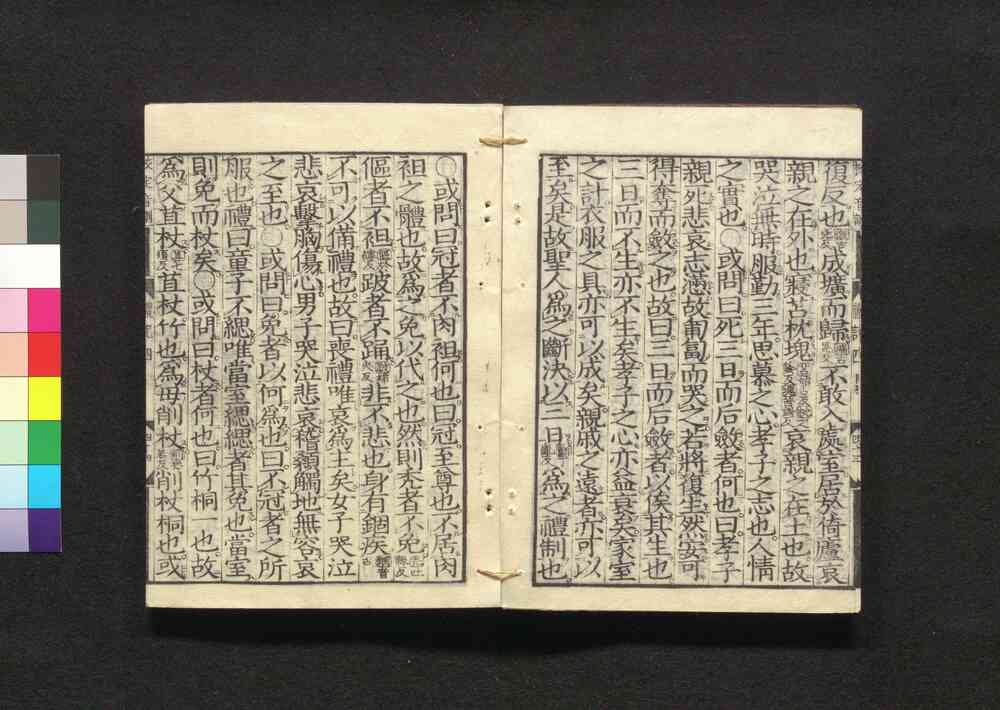 復反也成壙而歸不敢入處室居於倚廬哀
親之在外也寢苫枕塊哀親之在土也故
哭泣無時服勤三年思慕之心孝子之志也人情
之實也○或問曰死三日而后斂者何也曰孝子
親死悲哀志懣故匍匐而哭之若將復生然安可
得奪而斂之也故曰三日而后斂者以俟其生也
三日而不生亦不生矣孝子之心亦益衰矣家室
之計衣服之具亦可以成矣親戚之遠者亦可以
至矣是故聖人為之斷決以三日為之禮制也
○或問曰冠者不肉袒何也曰冠至尊也不居肉
袒之體也故為之免以代之也然則禿者不免
傴者不袒跛者不踊非不悲也身有錮疾
不可以備禮也故曰喪禮唯哀為主矣女子哭泣
悲哀擊胸傷心男子哭泣悲哀稽顙觸地無容哀
之至也○或問曰免者以何為也曰不冠者之所
服也禮曰童子不緦唯當室緦緦者其免也當室
則免而杖矣○或問曰杖者何也曰竹桐一也故
為父苴杖苴杖竹也為母削杖削杖桐也或